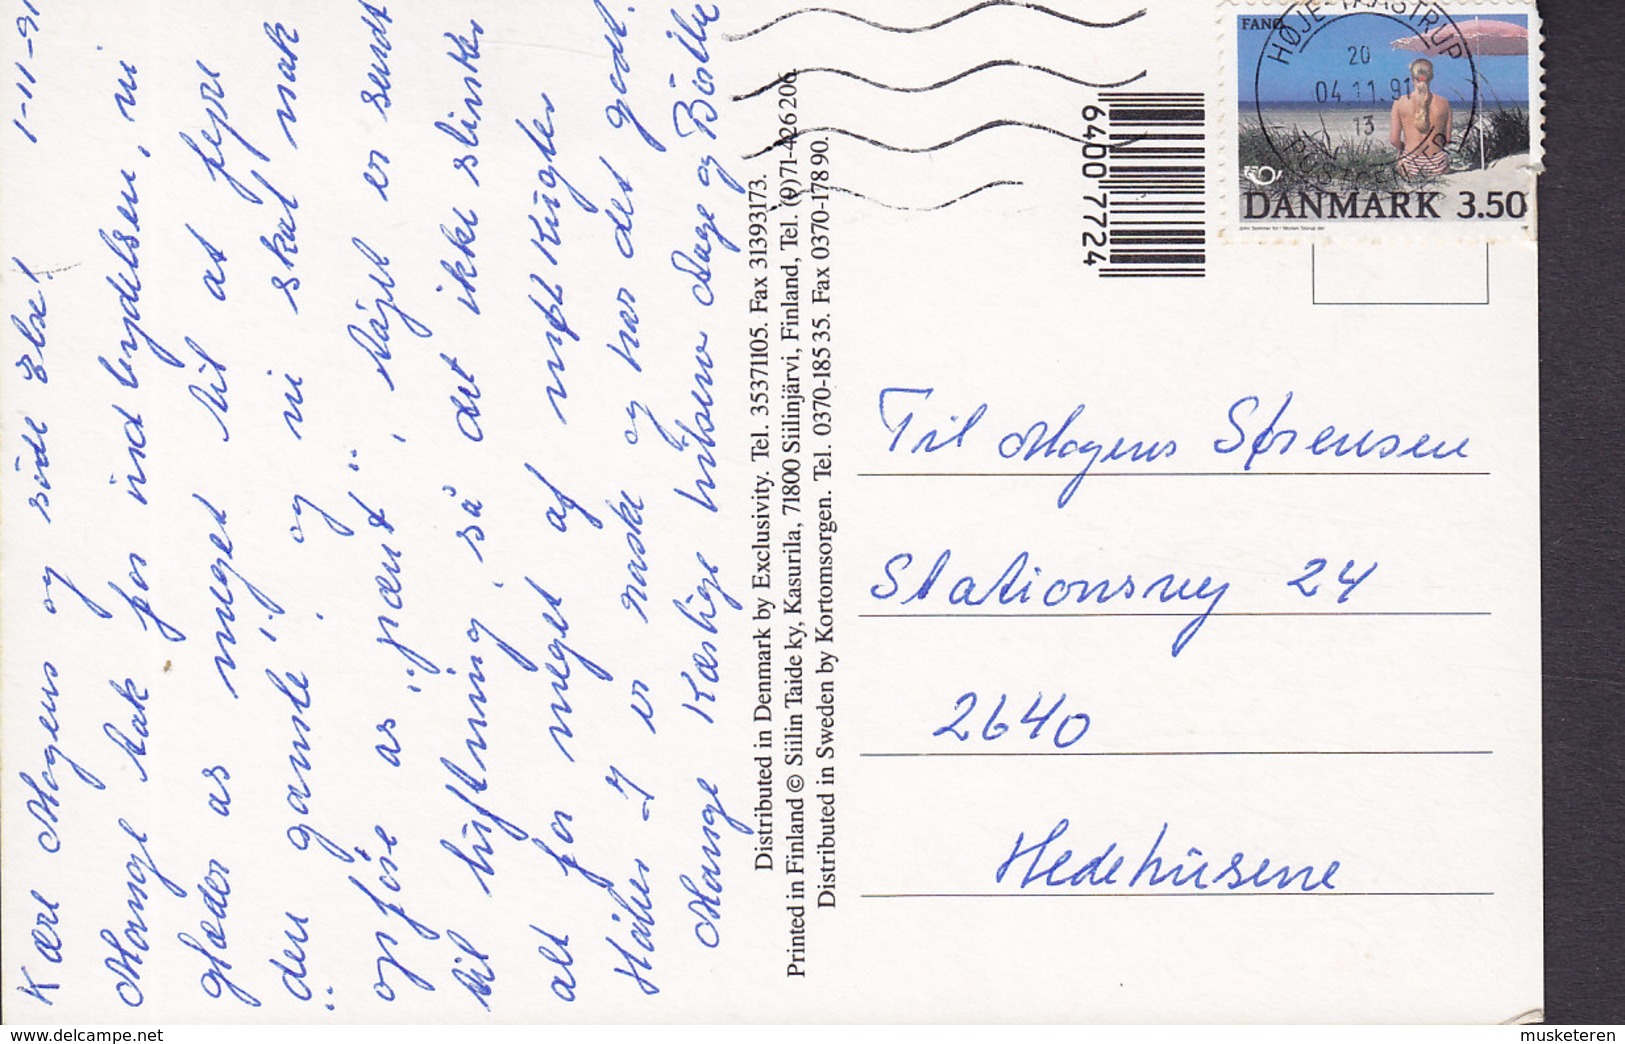 1-11-91
Kære Mogens og søde Else!
Mange tak for indbydelsen, vi
glæder os meget til at fejre
"den gamle", og vi skal nok
opføre os "pænt", tøjet er sendt
til luftning, så det ikke stinker
alt for meget af mølkugler
Håber I er raske og har det godt.
Mange kærlige hilsner Aage og Bodil
Distributed in Denmark by Exclusivity. Tel. 35371105. Fax 31393173.
Printed in Finland © Siilin Taide ky, Kasurila, 71800 Siilinjärvi, Finland, Tel. (9)71-426206.
Distributed in Sweden by Kortomsorgen. Tel. 0370-185 35. Fax 0370-178 90.
6400 7724
FANØ
HØJE-TAASTRUP
20
04.11.91
13
POSTCENTER
DANMARK 3.50
Til Mogens Sørensen
Stationsvej 24
2640
Hedehusene
© For use only on delcampe.net
musketeren